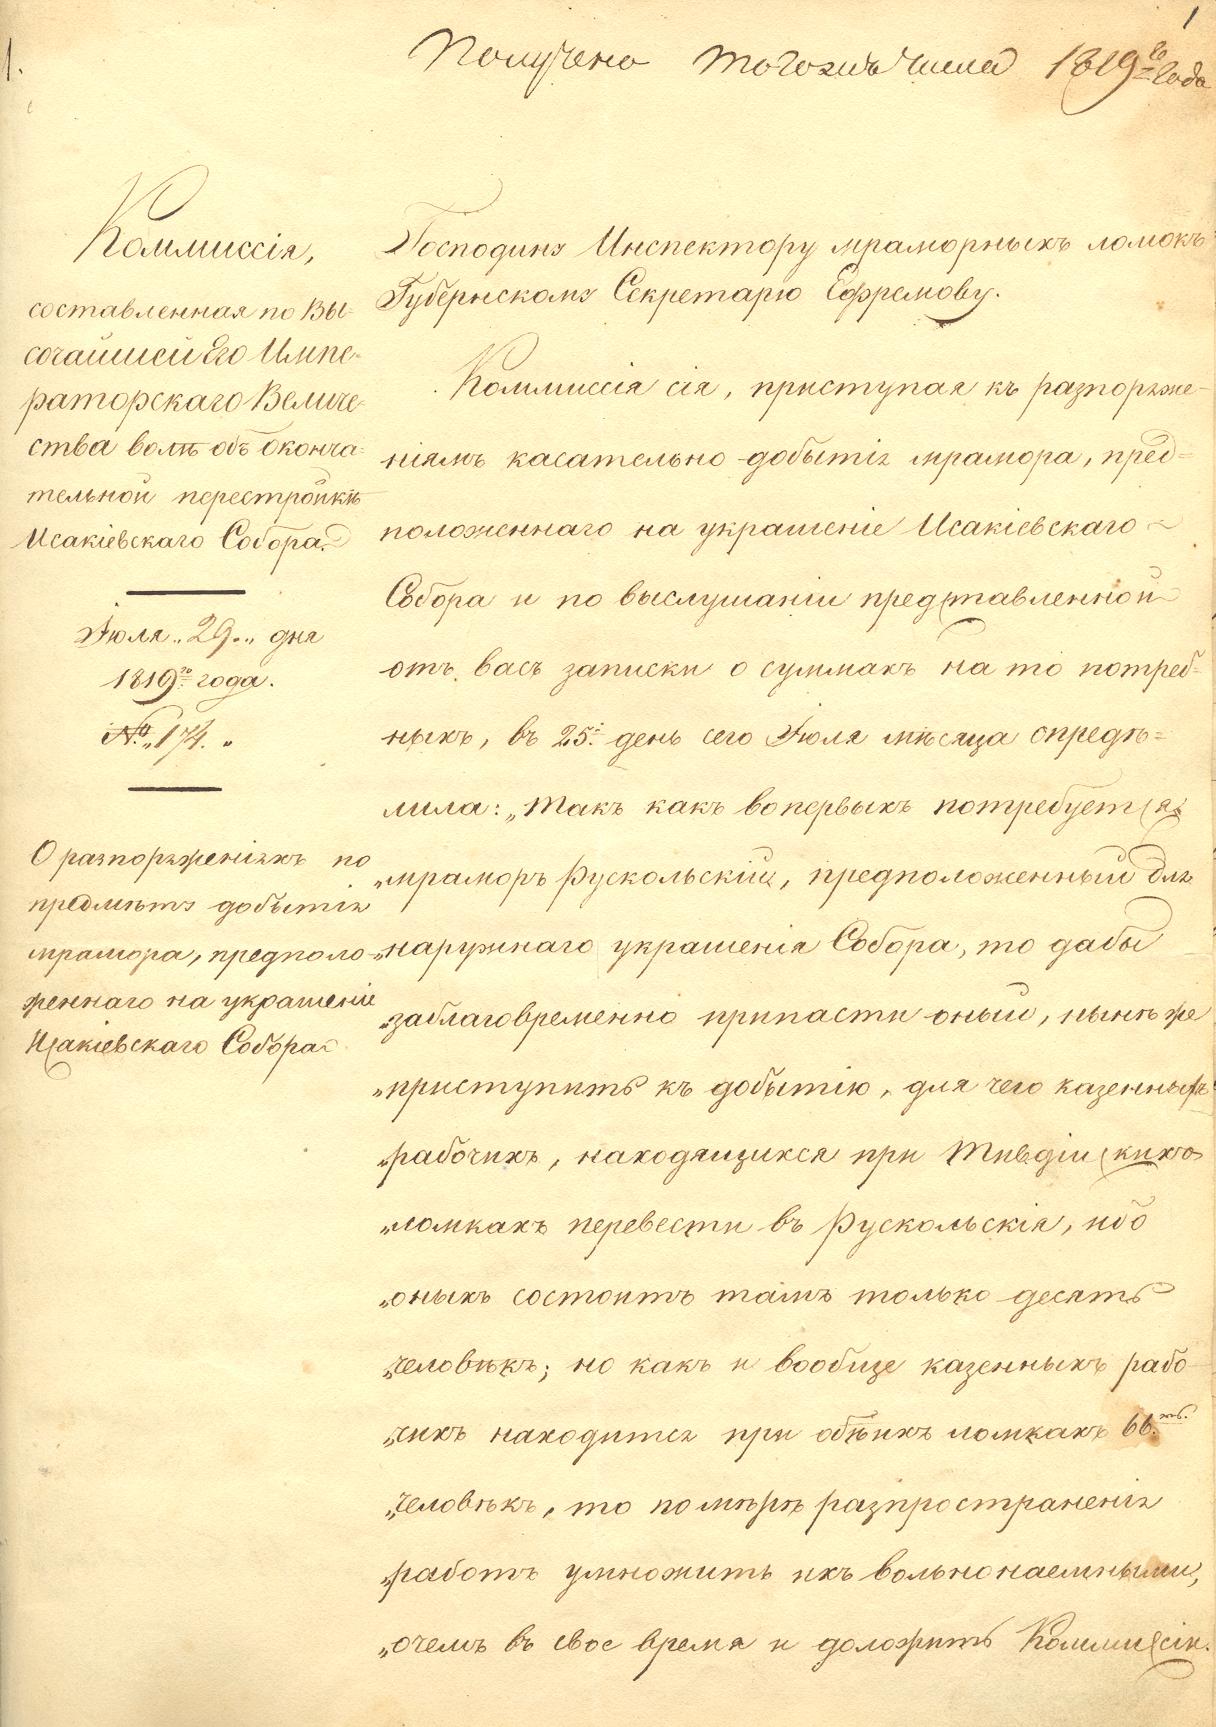 1
1.
Получено тогожъ числа 1819го года
Коммиссія,
составленная по Вы-
сочайшей Его Импе-
раторскаго Величе-
ства волѣ объ оконча-
тельной перестройкѣ
Исакіевскаго Собора.
Іюля „29.„ дня
1819го года.
№. „174. „
О разпоряженіяхъ по
предмѣту добытія
мрамора, предполо-
женнаго на украшеніе
Исакіевскаго Собора
Господину Инспектору мраморныхъ ломокъ
Губернскому Секретарю Ефремову.
Коммиссія сія, приступая къ разпоряже-
ніямъ касательно добытія мрамора, пред-
положеннаго на украшеніе Исакіевскаго
Собора и по выслушаніи представленной
отъ васъ записки о суммахъ на то потреб-
ныхъ, въ 25й день сего Іюля мѣсяца опредѣ-
лила: „Такъ какъ вопервыхъ потребуется
„мраморъ Рускольскій, предположенный для
„наружнаго украшенія Собора, то дабы
„заблаговременно припасти оный, нынѣ же
„приступить къ добытію, для чего казенныхъ
„рабочихъ, находящихся при Тивдійскихъ
„ломкахъ перевести въ Рускольскія, ибо
„оныхъ состоитъ тамъ только десять
„человѣкъ; но какъ и вообще казенныхъ рабо-
„чихъ находится при обѣихъ ломкахъ 66ть.
„человѣкъ, то по мѣрѣ разпространенія
„работъ умножить ихъ вольнонаемными,
„очемъ въ свое время и доложить Коммиссіи.